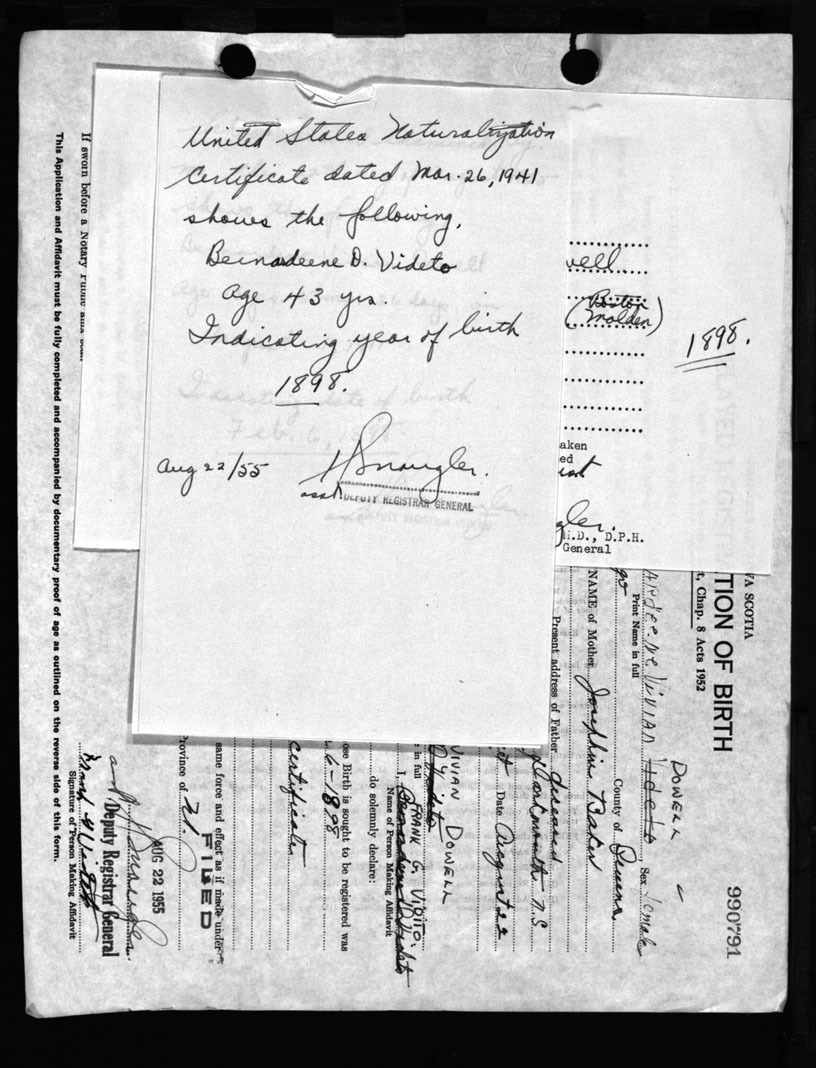 United States Naturalization
Certificate dated Mar. 26, 1941
shows the following,
Bernadeene D. Videto
Age 43 yrs.
Indicating year of birth
1898.
Indicating date of birth
Feb. 6, 1898.
Aug 22/55
asst. DEPUTY REGISTRAR GENERAL
well
(Boston
Malden)
1898.
aken
ed
M.D., D.P.H.
General
VA SCOTIA
TION OF BIRTH
t, Chap. 8 Acts 1952
990791
DOWELL
VIVIAN Videto
Print Name in full
Sex female
County of Queens
NAME of Mother Josephine Baker
Present address of Father deceased
Dartmouth N.S.
Date August 22
VIVIAN DOWELL
D Videto
in full
FRANK G. VIDITO,
I,
Name of Person Making Affidavit
do solemnly declare:
ose Birth is sought to be registered was
6-1898
certificate
same force and effect as if made under
FILED
Province of N.
AUG 22 1955
Deputy Registrar General
Signature of Person Making Affidavit
If sworn before a Notary Public
This Application and Affidavit must be fully completed and accompanied by documentary proof of age as outlined on the reverse side of this form.